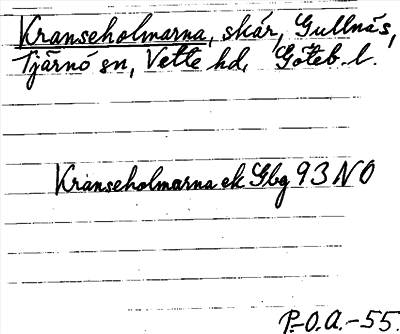 Kranseholmarna, skär, Gullnäs,
Tjärnö sn, Vette hd. Göteb. l.
Kranseholmarna ek Gbg 93 NO
P.-O.A.-55.